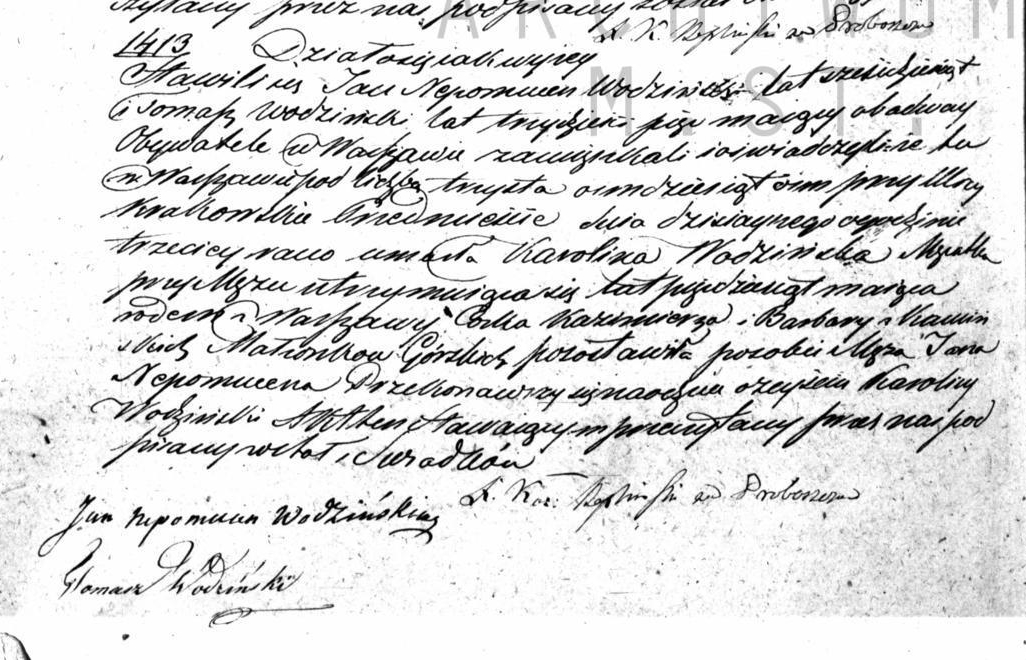 czytany przez nas podpisany został
X. K. za Proboszcza
1413 Działo się iak wyżej
Stawili się Jan Nepomucen Wodziński lat sześćdziesiąt
i Tomasz Wodziński lat trzydzieści pięć maiący obadway
Obywatele w Warszawie zamieszkali i oświadczyli że tu
w Warszawie pod liczbą trzysta ośmdziesiąt ośm przy Ulicy
Krakowskie Przedmieście dnia dzisiaynego o godzinie
trzeciey rano umarła Karolina Wodzińska Mężatka
przy Mężu utrzymuiąca się lat pięćdziesiąt maiąca
rodem z Warszawy Córka Kazimierza i Barbary z Kamiń
skich Małżonków Górskich pozostawiła po sobie Męża Jana
Nepomucena Przekonawszy się naocznie o zeyściu Karoliny
Wodzińskie Akt ten Stawaiącym przeczytany przez nas pod
pisany został i Świadków
X. Kaz. za Proboszcza
Jan Nepomucen Wodziński
Tomasz Wodziński